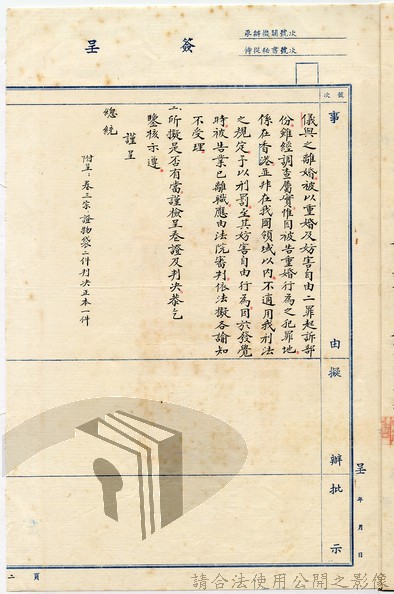 簽呈
承辦機關號次
侍從秘書號次
號次
事由擬辦批示
儀與之離婚被以重婚及妨害自由二罪起訴部
份雖經調查屬實惟自被告重婚行為之犯罪地
係在香港並非在我國領域以內不適用我刑法
之規定予以刑罰至其妨害自由行為因於發覺
時被告業已離職應由法院審判依法擬各諭知
不受理
二、所擬是否有當謹檢呈卷證及判決恭乞
鑒核示遵
謹呈
總統
附呈：卷三宗證物袋二件判決正本一件
呈 年 月 日
二頁
請合法使用公開之影像